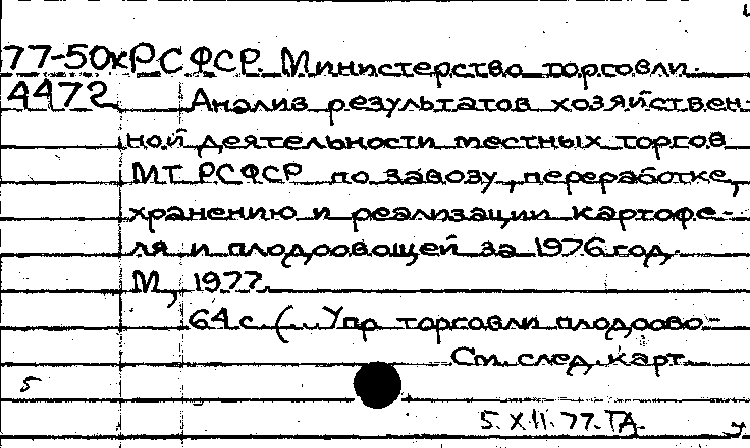 77-50к РСФСР. Министерство торговли.
4472 Анализ результатов хозяйствен
ной деятельности местных торгов
МТ РСФСР по завозу, переработке,
хранению и реализации картофе-
ля и плодоовощей за 1976 год.
М, 1977.
64 с. (...Упр торговли плодоово-
См. след. карт.
5
5.XII.77.ТА.